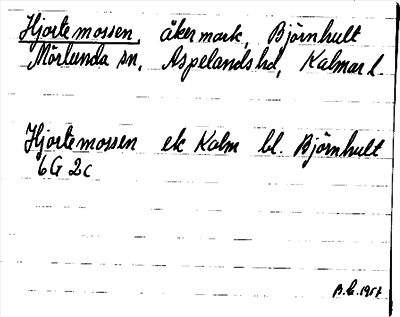 Hjortemossen, åkermark, Björnhult
Mörlunda sn, Aspelands hd, Kalmar l.
Hjortemossen ek Kalm bl. Björnhult
6G 2c